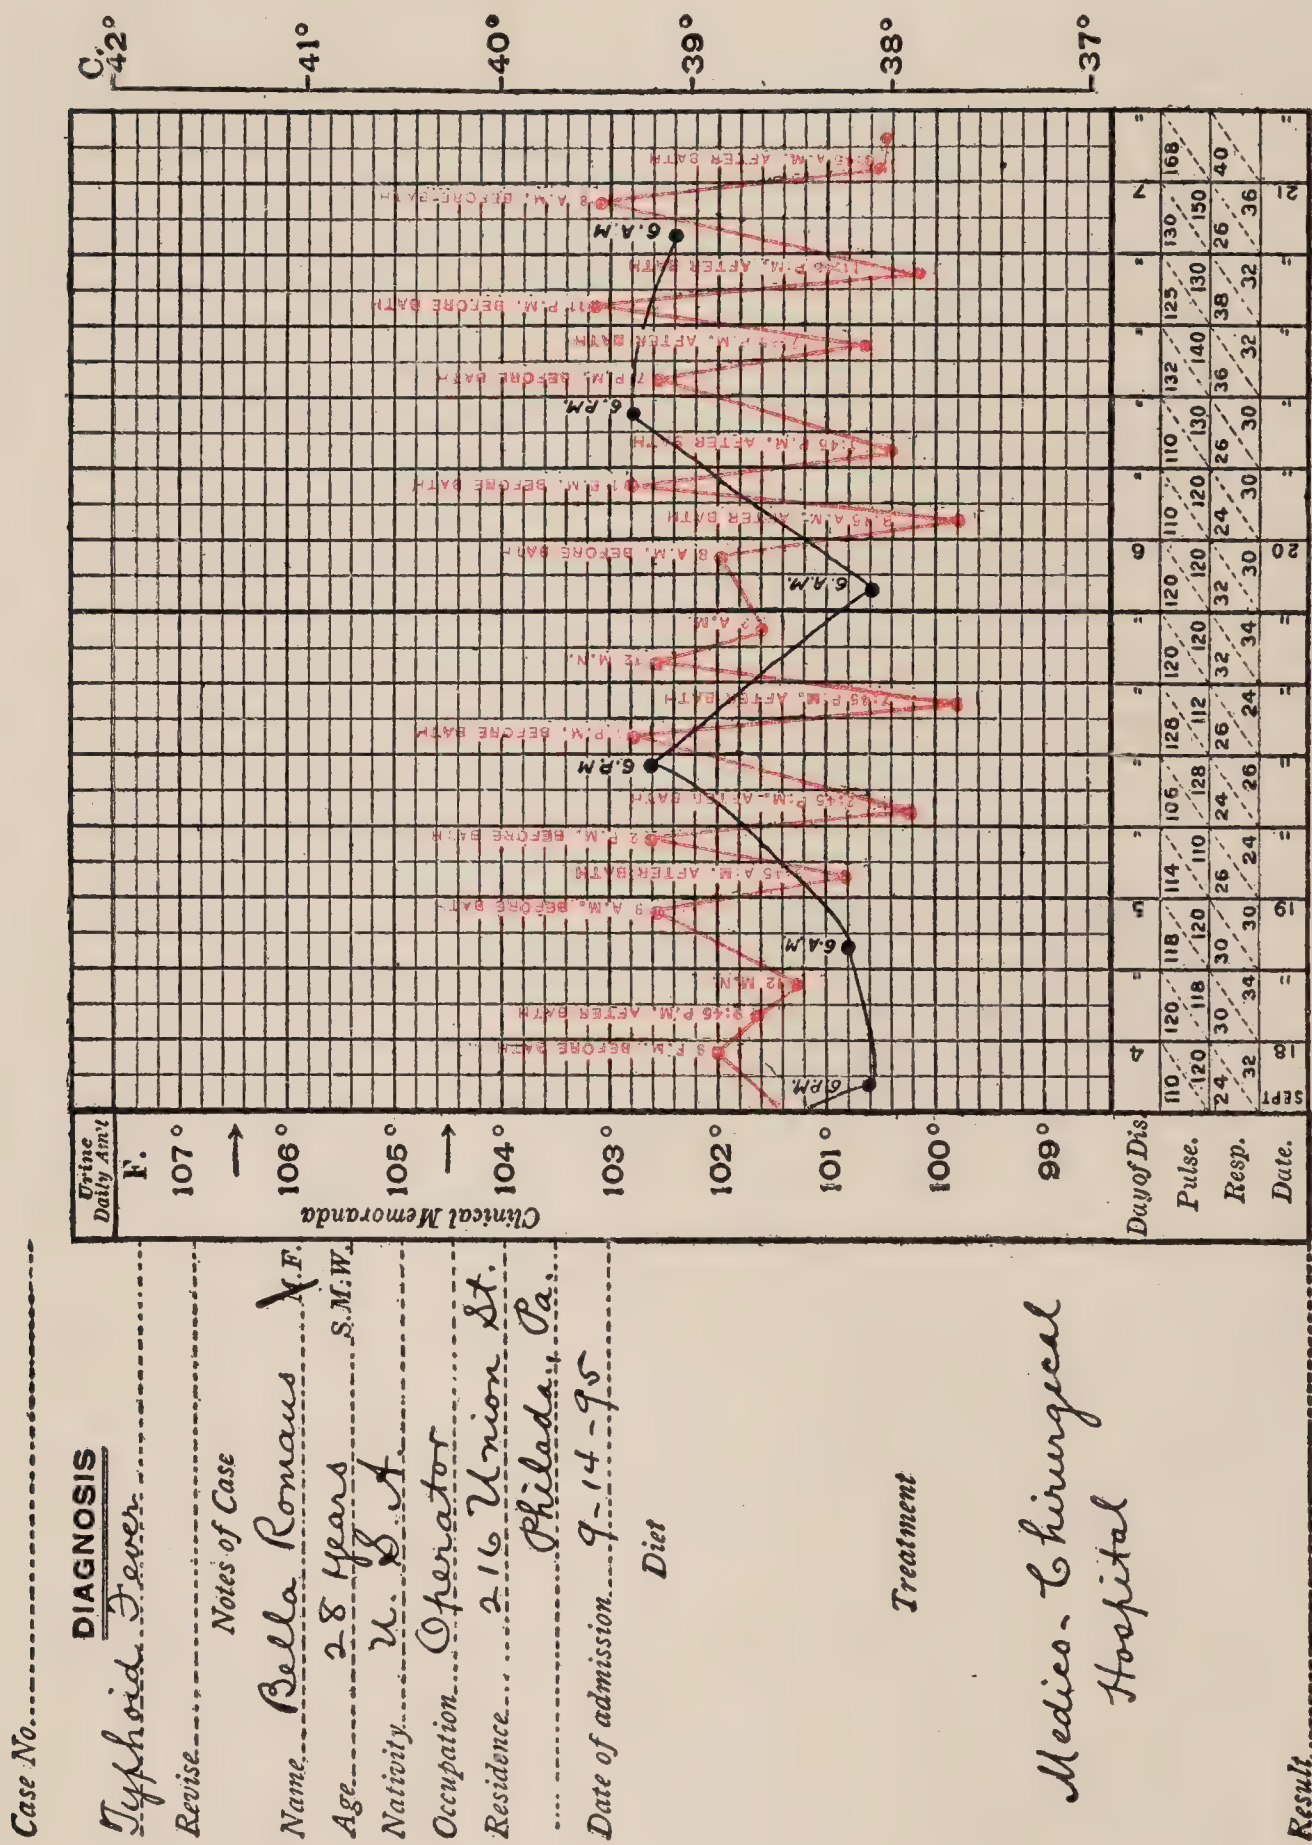 Case No.
DIAGNOSIS
Typhoid Fever
Revise
Notes of Case
Name Bella Romaus M.F.
Age 28 years S.M.W.
Nativity U.S.A.
Occupation Operator
Residence 216 Union St.
Philada., Pa.
Date of admission 9-14-95
Diet
Treatment
Medico-Chirurgical
Hospital
Result
Urine
Daily Am't
F.
107°
106°
105°
104°
103°
102°
101°
100°
99°
Clinical Memoranda
C.
42°
41°
40°
39°
38°
37°
6. P.M.
8 P.M. BEFORE BATH
9:45 P.M. AFTER BATH
12 M.N.
6. A.M.
9 A.M. BEFORE BATH
:45 A.M. AFTER BATH
2 P.M. BEFORE BATH
2:45 P.M. AFTER BATH
6. P.M
P.M. BEFORE BATH
7:45 P.M. AFTER BATH
12 M.N.
2 A.M.
6. A.M.
8 A.M. BEFORE BATH
:45 A.M. AFTER BATH
1 P.M. BEFORE BATH
:45 P.M. AFTER BATH
6. P.M.
7 P.M. BEFORE BATH
P.M. AFTER BATH
11 P.M. BEFORE BATH
11:45 P.M. AFTER BATH
6. A.M
8 A.M. BEFORE BATH
8:45 A.M. AFTER BATH
Day of Dis. 4 " 5 " " " " 6 " " " " 7 "
Pulse. 110 120 120 118 118 120 114 110 106 128 128 112 120 120 120 120 110 120 110 130 132 140 125 130 130 150 168
Resp. 24 32 30 34 30 30 26 24 24 26 26 24 32 34 32 30 24 30 26 30 36 32 38 32 26 36 40
Date. SEPT 18 " 19 " " " " 20 " " " " 21 "